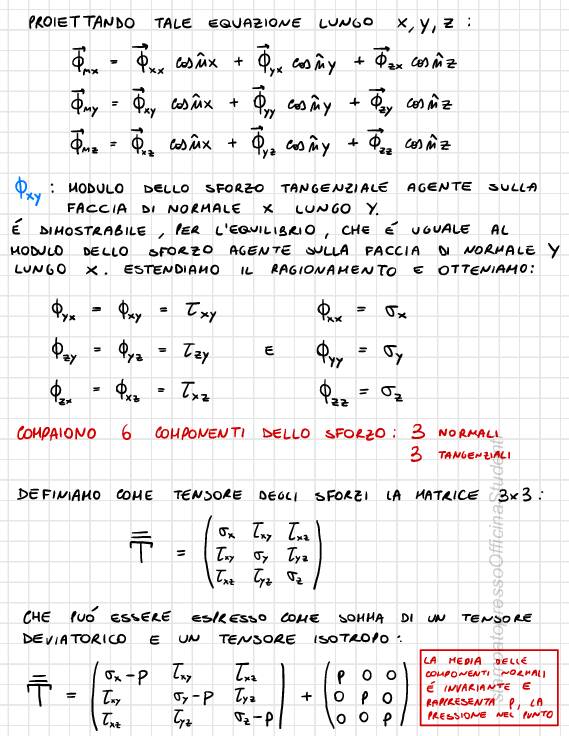 PROIETTANDO TALE EQUAZIONE LUNGO X, Y, Z :
Φ⃗nx = Φ⃗xx cos n̂x + Φ⃗yx cos n̂y + Φ⃗zx cos n̂z
Φ⃗ny = Φ⃗xy cos n̂x + Φ⃗yy cos n̂y + Φ⃗zy cos n̂z
Φ⃗nz = Φ⃗xz cos n̂x + Φ⃗yz cos n̂y + Φ⃗zz cos n̂z
Φxy : MODULO DELLO SFORZO TANGENZIALE AGENTE SULLA
FACCIA DI NORMALE X LUNGO Y.
É DIMOSTRABILE, PER L'EQUILIBRIO, CHE É UGUALE AL
MODULO DELLO SFORZO AGENTE SULLA FACCIA DI NORMALE Y
LUNGO X. ESTENDIAMO IL RAGIONAMENTO E OTTENIAMO:
Φyx = Φxy = τxy Φxx = σx
Φzy = Φyz = τzy E Φyy = σy
Φzx = Φxz = τxz Φzz = σz
COMPAIONO 6 COMPONENTI DELLO SFORZO: 3 NORMALI
3 TANGENZIALI
DEFINIAMO COME TENSORE DEGLI SFORZI LA MATRICE 3x3:
T = ( σx τxy τxz
τxy σy τyz
τxz τyz σz )
CHE PUÓ ESSERE ESPRESSO COME SOMMA DI UN TENSORE
DEVIATORICO E UN TENSORE ISOTROPO:
T = ( σx-p τxy τxz
τxy σy-p τyz
τxz τyz σz-p ) + ( p 0 0
0 p 0
0 0 p )
LA MEDIA DELLE
COMPONENTI NORMALI
É INVARIANTE E
RAPPRESENTA P, LA
PRESSIONE NEL PUNTO
stampatopressoOfficinaStudenti